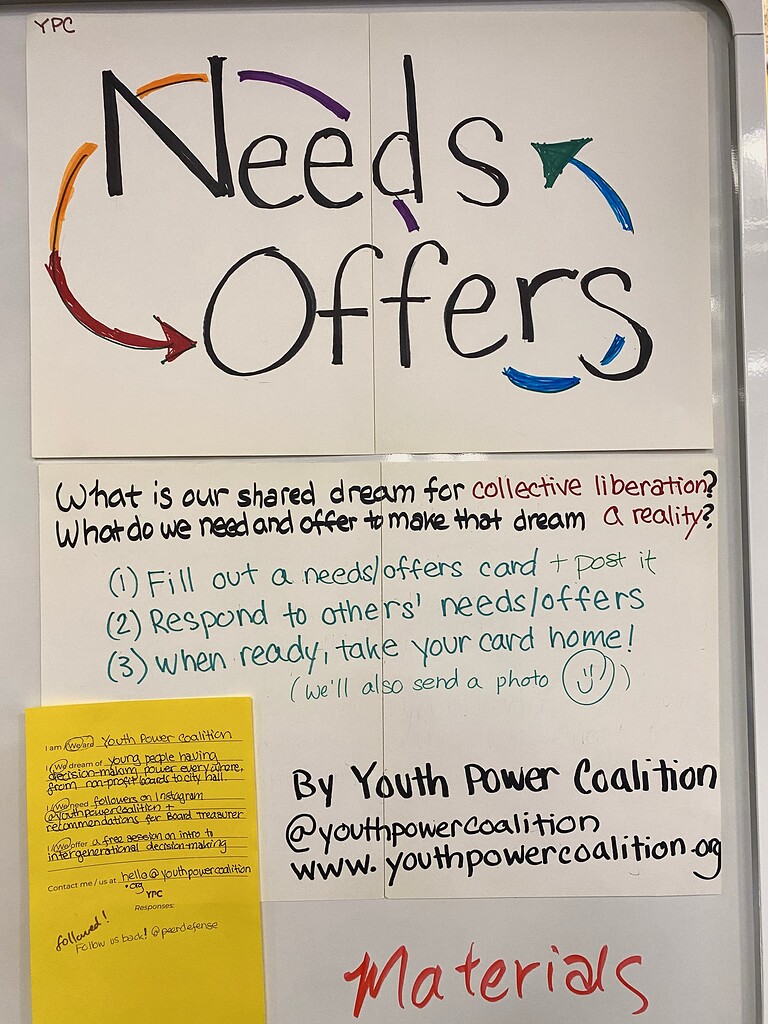 YPC
Needs
Offers
What is our shared dream for collective liberation?
What do we need and offer to make that dream a reality?
(1) Fill out a needs/offers card + post it
(2) Respond to others' needs/offers
(3) When ready, take your card home!
(we'll also send a photo )
I am / We are Youth Power Coalition
I / We dream of young people having
decision-making power everywhere,
from non-profit boards to city hall.
I / We need followers on Instagram
@youthpowercoalition +
recommendations for Board Treasurer
I / We offer a free session on intro to
intergenerational decision-making
Contact me / us at hello@youthpowercoalition
.org
YPC
Responses:
followed!
Follow us back! @peerdefense
By Youth Power Coalition
@youthpowercoalition
www.youthpowercoalition.org
Materials